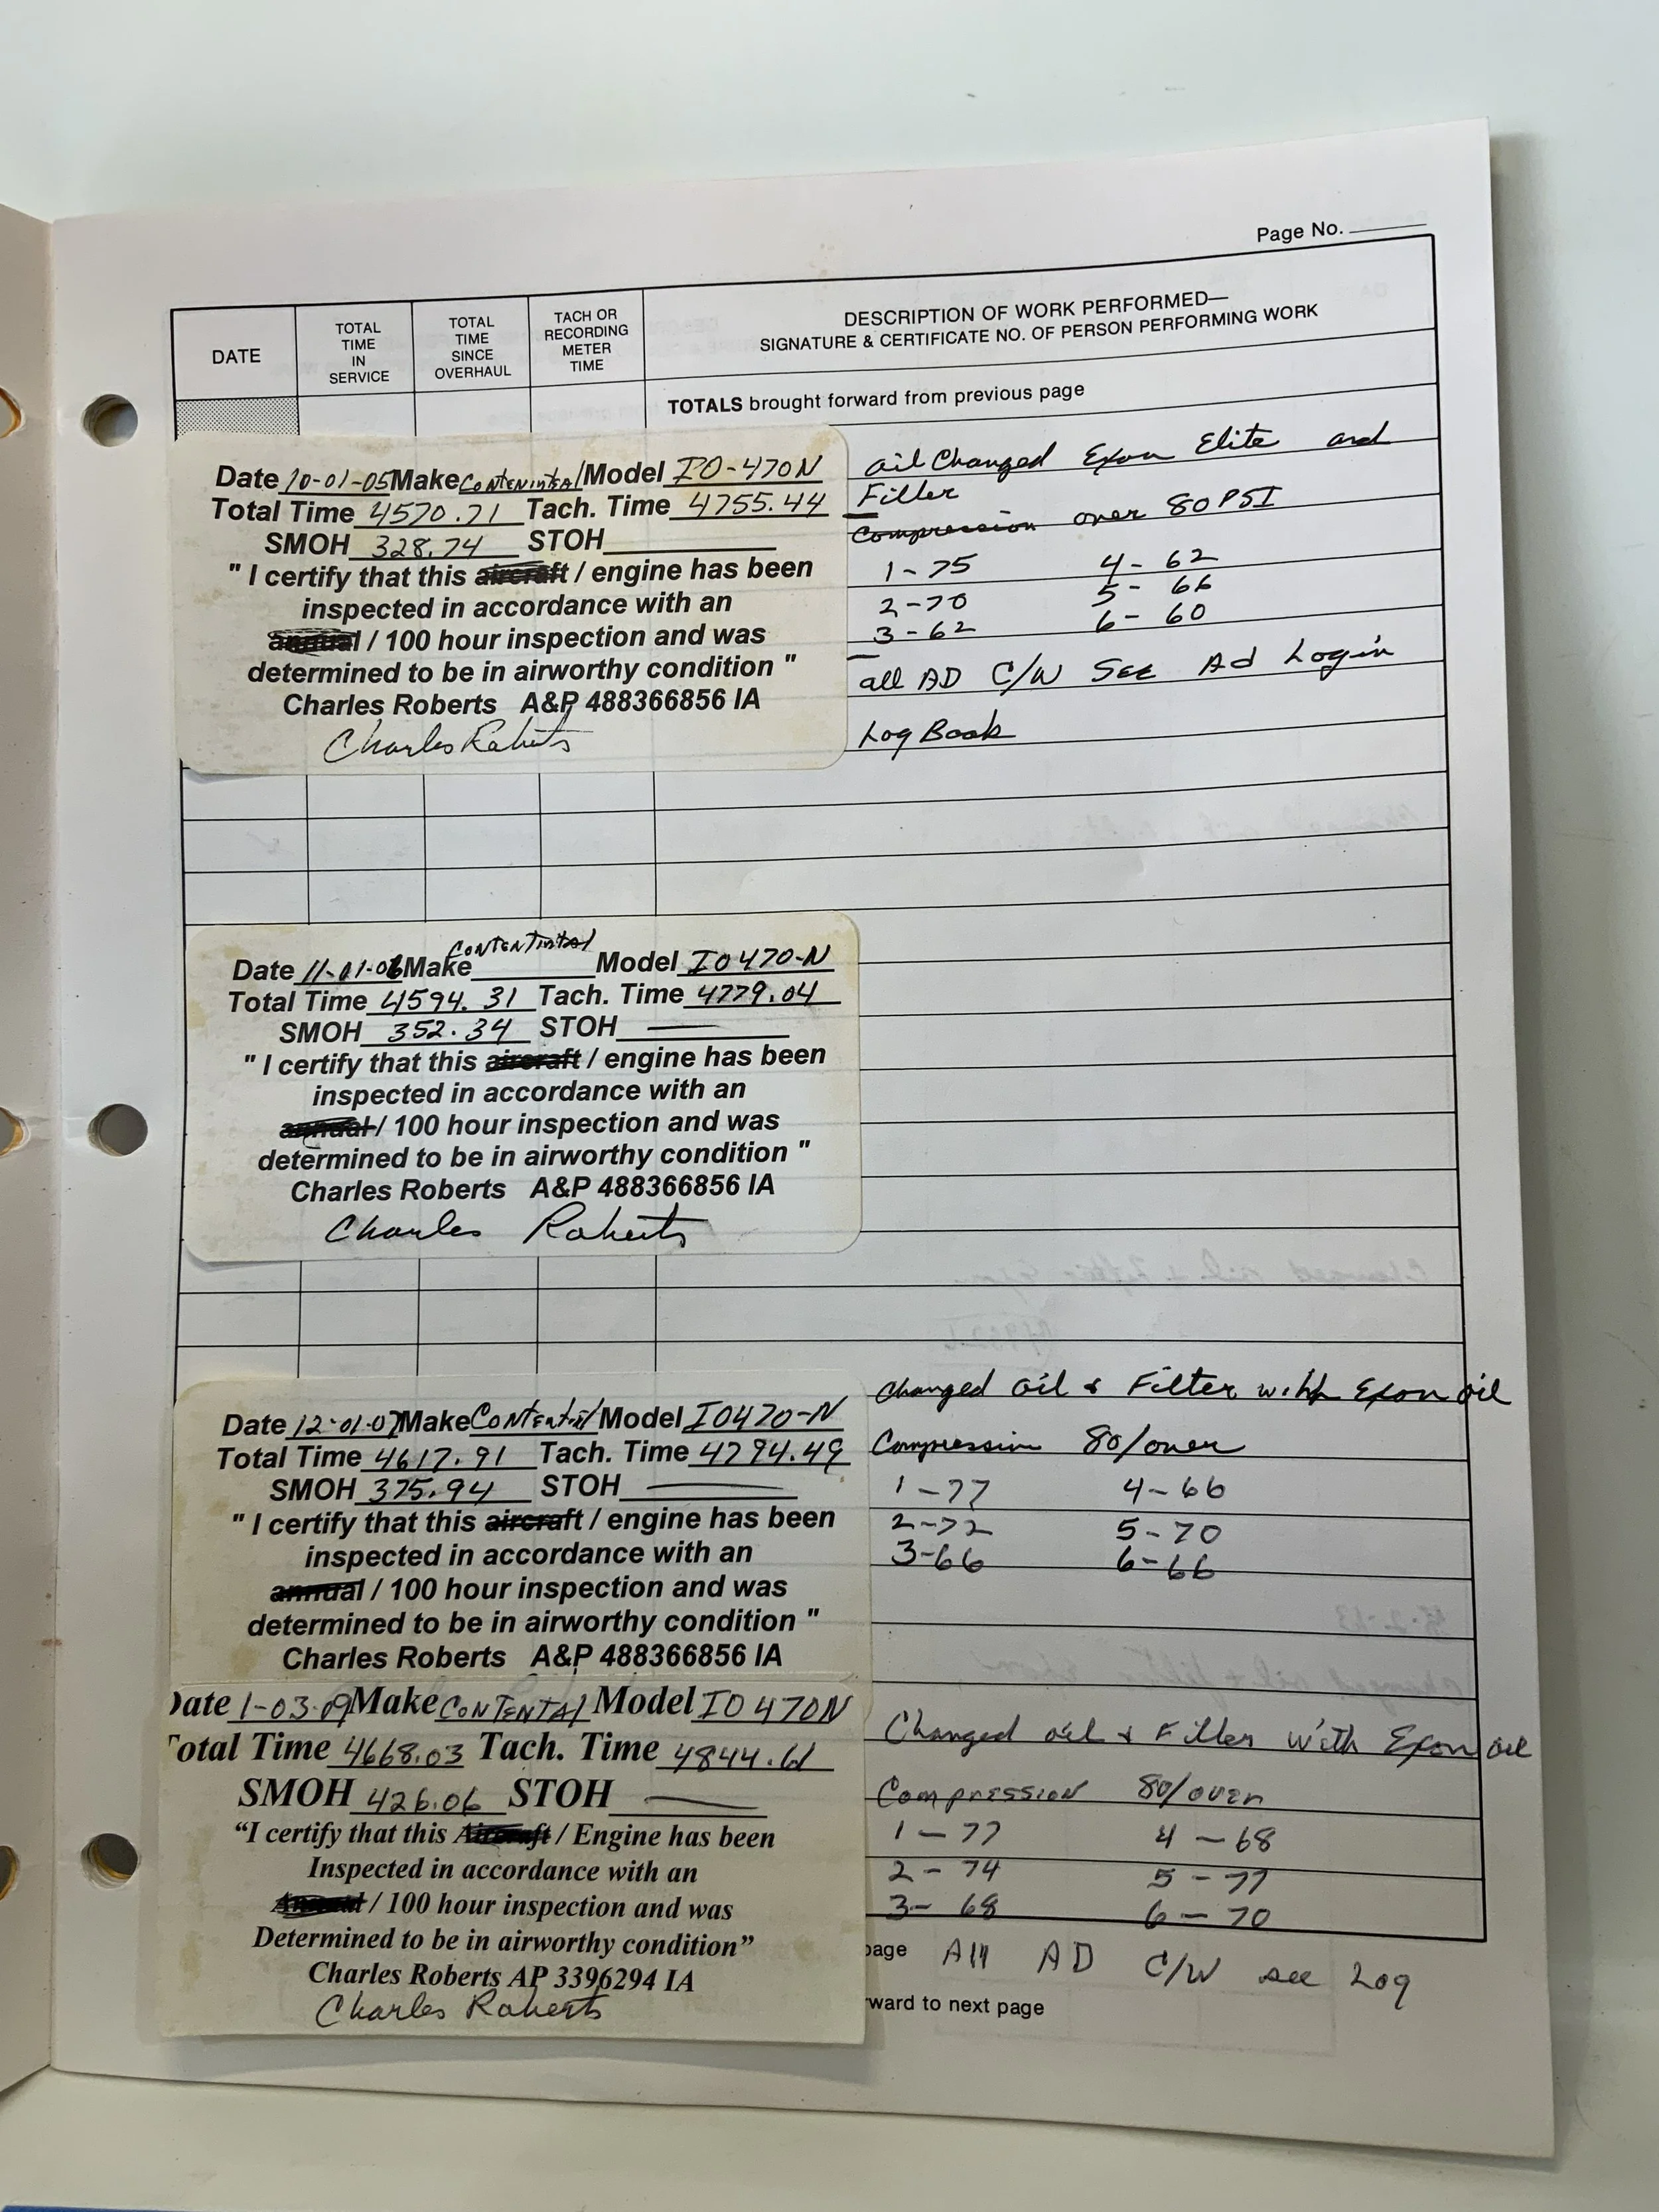 Page No.
DATE
TOTAL TIME IN SERVICE
TOTAL TIME SINCE OVERHAUL
TACH OR RECORDING METER TIME
DESCRIPTION OF WORK PERFORMED—
SIGNATURE & CERTIFICATE NO. OF PERSON PERFORMING WORK
TOTALS brought forward from previous page
Date 10-01-05 Make Contenintal Model IO-470N
Total Time 4570.71 Tach. Time 4755.44
SMOH 328.74 STOH
" I certify that this aircraft / engine has been
inspected in accordance with an
annual / 100 hour inspection and was
determined to be in airworthy condition "
Charles Roberts A&P 488366856 IA
Charles Roberts
oil Changed Exon Elite and
Filter
Compression over 80 PSI
1-75 4-62
2-70 5-66
3-62 6-60
all AD C/W See Ad Log in
Log Book
Date 11-01-06 Make Contentintal Model IO470-N
Total Time 4594.31 Tach. Time 4779.04
SMOH 352.34 STOH —
" I certify that this aircraft / engine has been
inspected in accordance with an
annual / 100 hour inspection and was
determined to be in airworthy condition "
Charles Roberts A&P 488366856 IA
Charles Roberts
Date 12-01-07 Make Model IO470-N
Total Time 4617.91 Tach. Time 4794.49
SMOH 375.94 STOH —
" I certify that this aircraft / engine has been
inspected in accordance with an
annual / 100 hour inspection and was
determined to be in airworthy condition "
Charles Roberts A&P 488366856 IA
Changed oil & Filter with Exon oil
Compression 80/over
1-77 4-66
2-72 5-70
3-66 6-66
Date 1-03-09 Make Contental Model IO470N
Total Time 4668.03 Tach. Time 4844.61
SMOH 426.06 STOH —
“I certify that this Aircraft / Engine has been
Inspected in accordance with an
Annual / 100 hour inspection and was
Determined to be in airworthy condition”
Charles Roberts AP 3396294 IA
Charles Roberts
Changed oil & Filter with Exon oil
Compression 80/over
1-77 4-68
2-74 5-77
3-68 6-70
page All AD C/W see Log
rward to next page